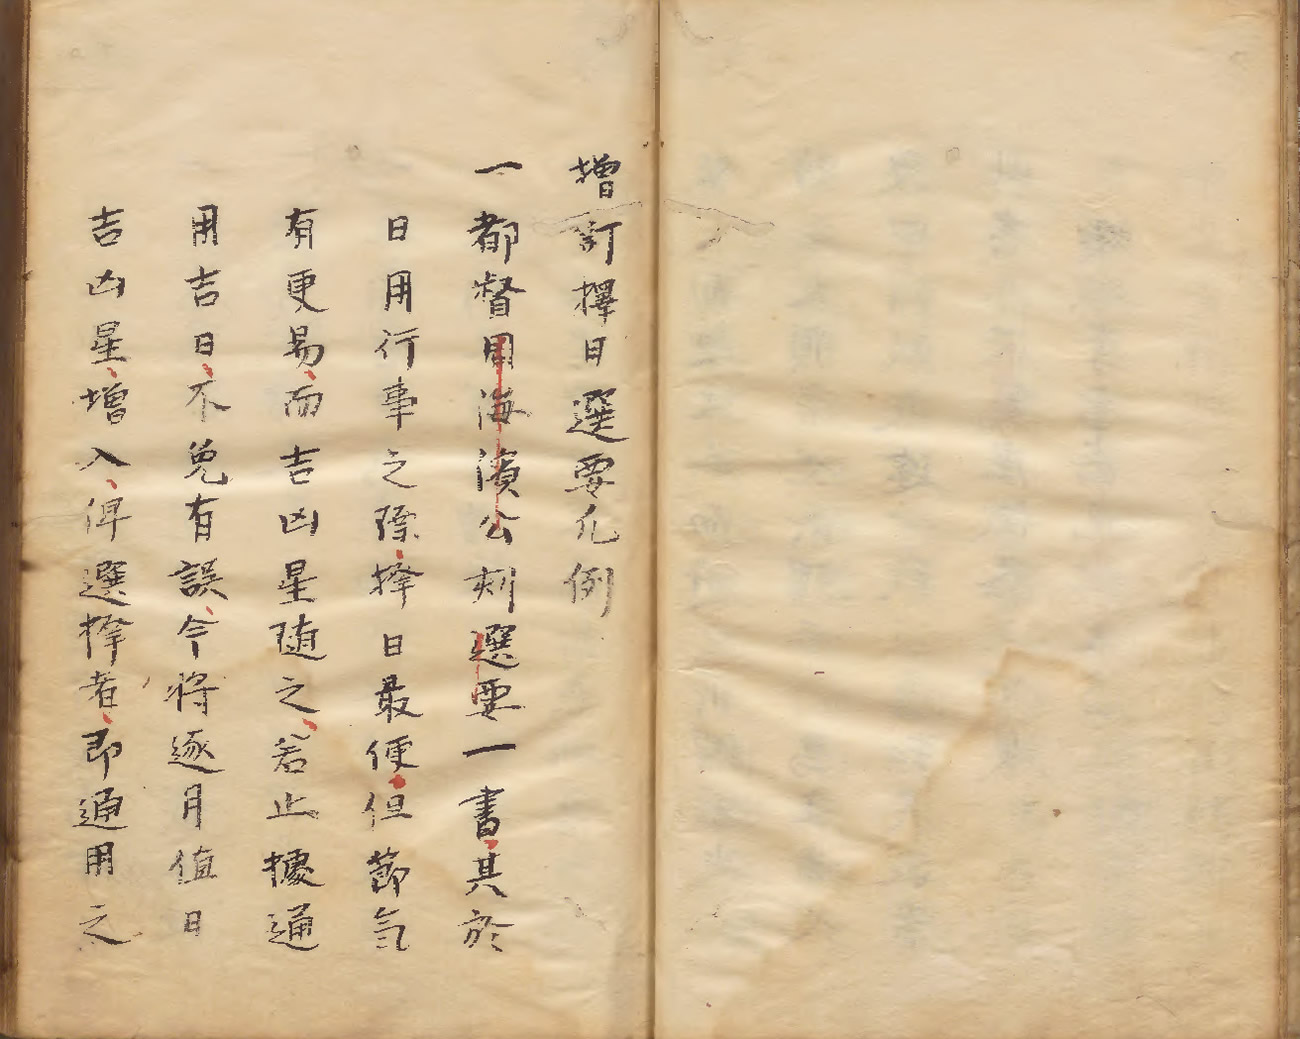 增訂擇日選要凢例
一都督周海濱公刻選要一書其於
日用行事之際擇日最便但節氣
有更易而吉凶星随之若止據通
用吉日不免有誤今將逐月值日
吉凶星增入俾選擇者即通用之